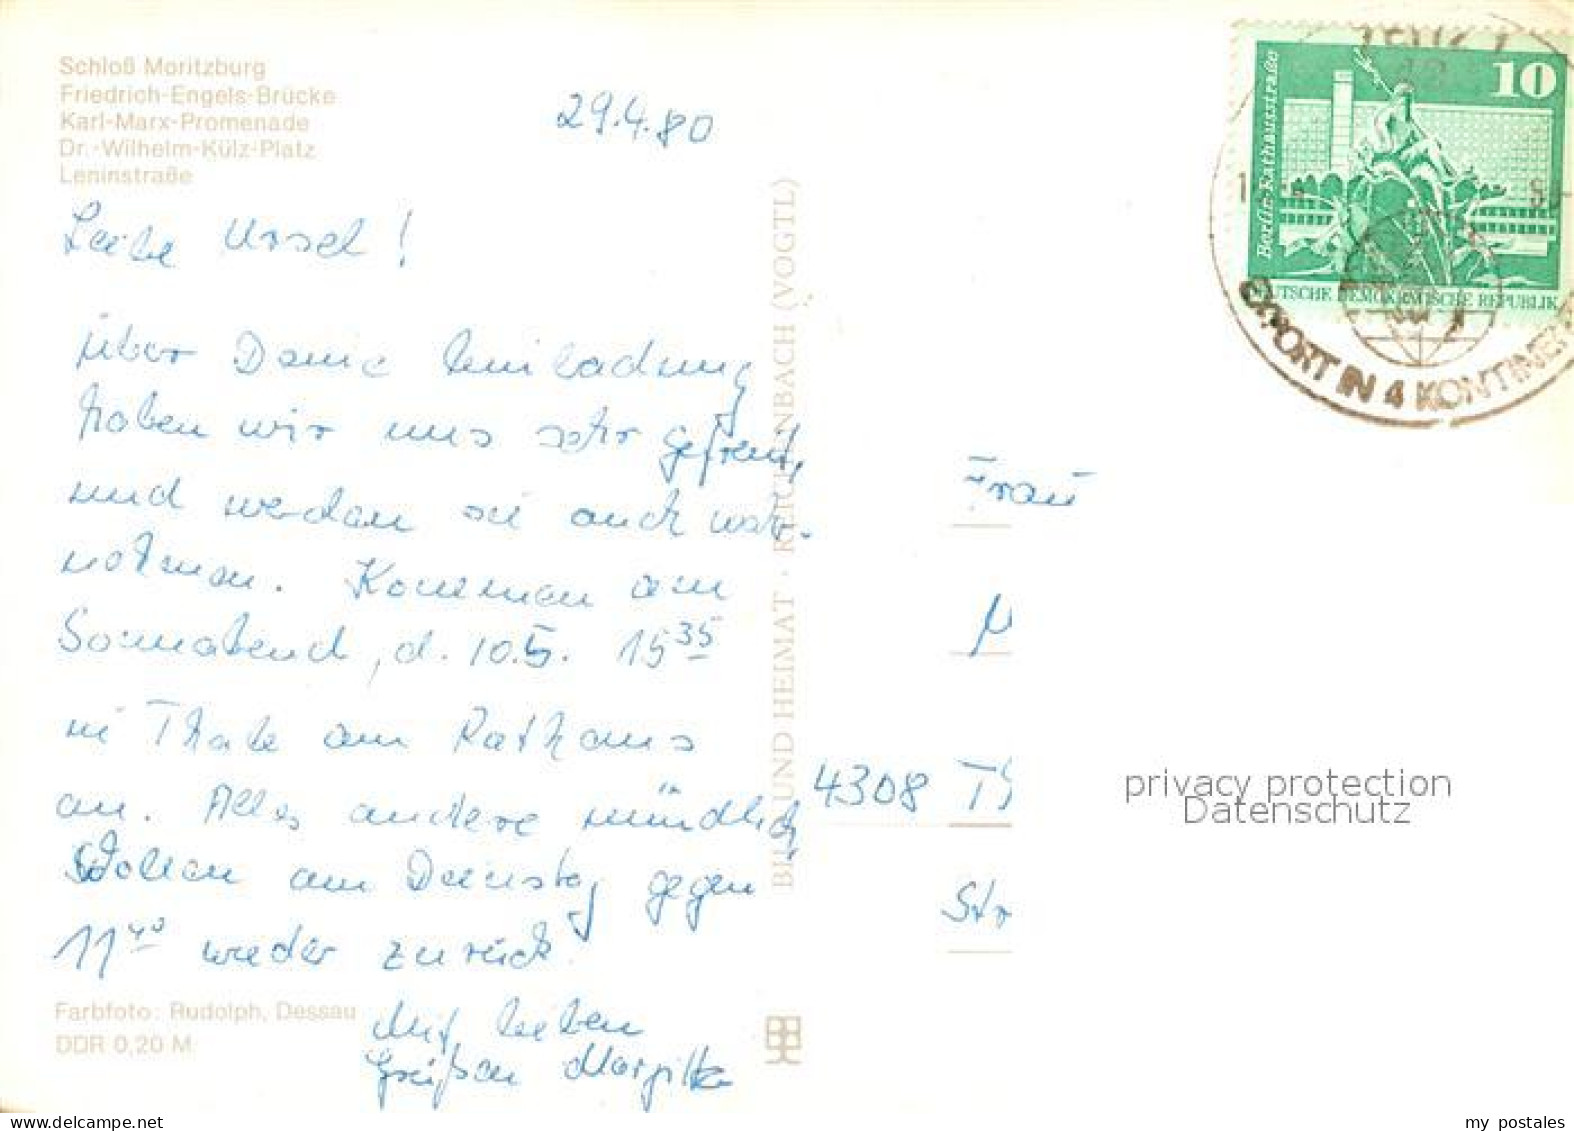 Schloß Moritzburg
Friedrich-Engels-Brücke
Karl-Marx-Promenade
Dr.-Wilhelm-Külz-Platz
Leninstraße
29.4.80
Liebe Ursel!
über Deine Einladung
haben wir uns sehr gefreut,
und werden sie auch wahr-
nehmen. Kommen am
Sonnabend, d. 10.5. 15 35
in Thale am Rathaus
an. Alles andere mündlich
Wollen am Dienstag gegen
11 40 wieder zurück.
Mit lieben
Grüßen Margitta
Farbfoto: Rudolph, Dessau
DDR 0,20 M
BILD UND HEIMAT · REICHENBACH (VOGTL)
10
Berlin-Rathausstraße
DEUTSCHE DEMOKRATISCHE REPUBLIK
EXPORT IN 4 KONTINEN
Frau
4308 Th
Str
privacy protection
Datenschutz
my postales